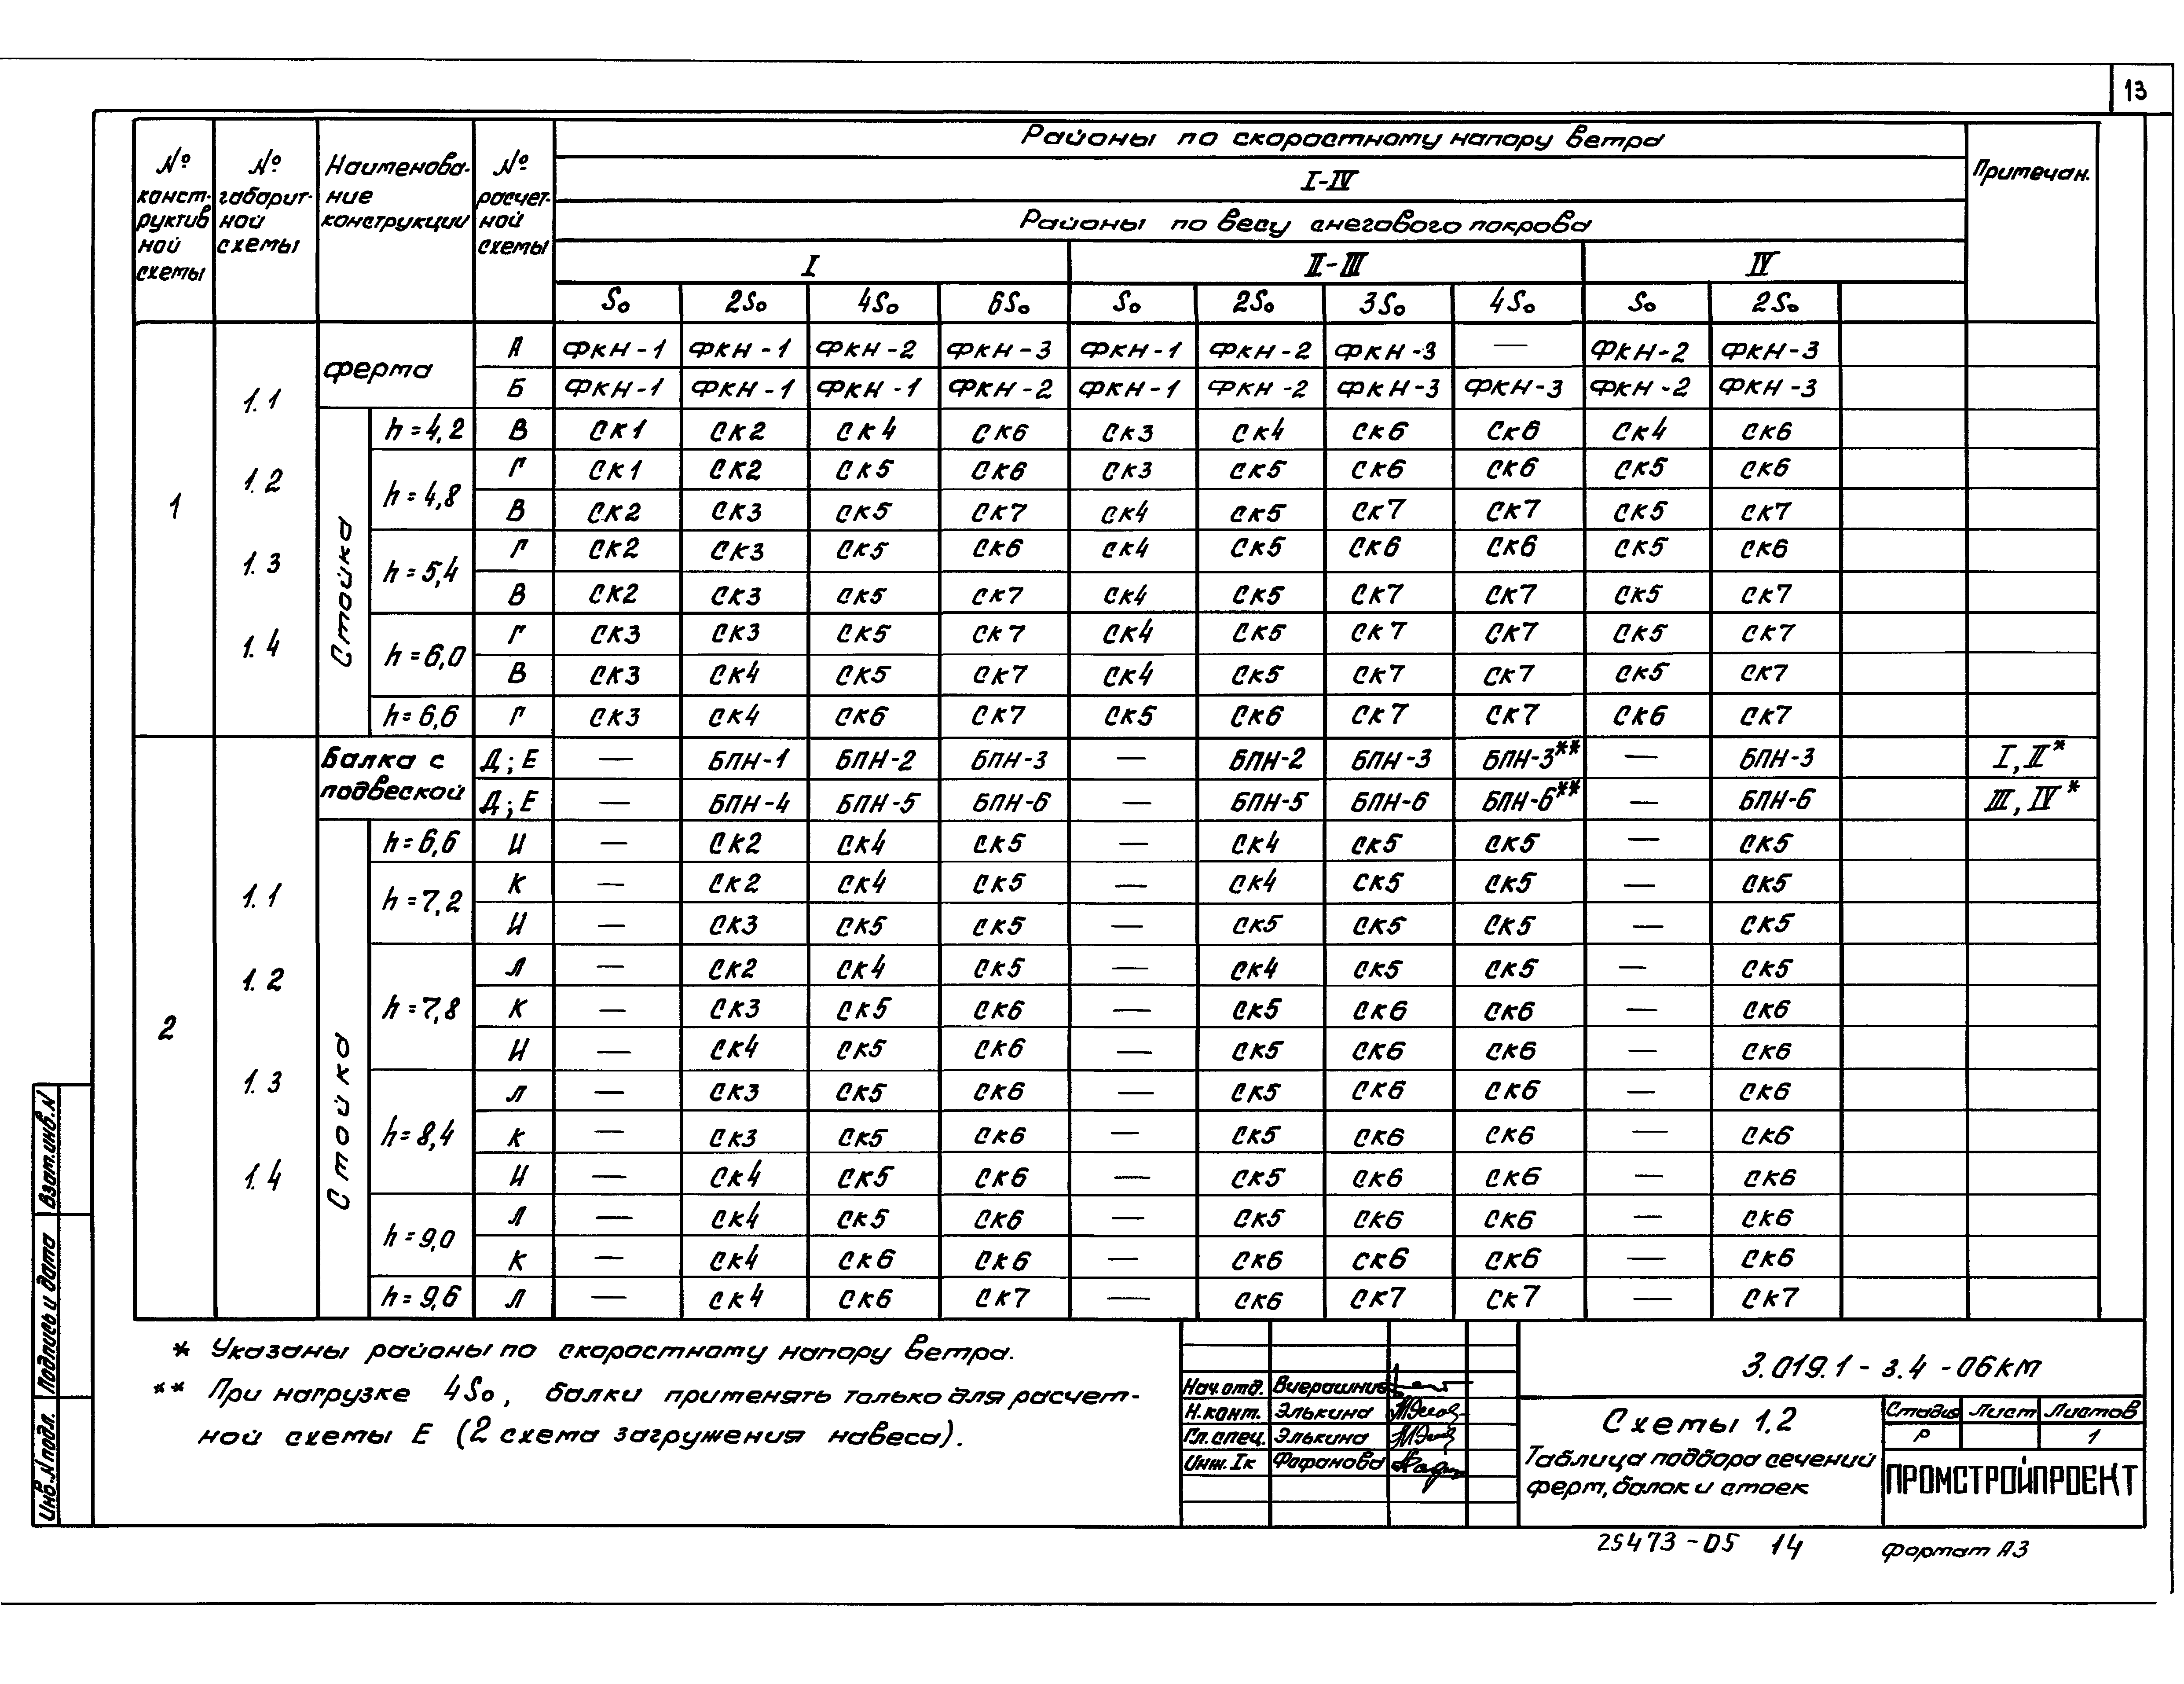 13
№ конструктивной схемы
№ габаритной схемы
Наименование конструкции
№ расчетной схемы
Районы по скоростному напору ветра
Примечан.
I-IV
Районы по весу снегового покрова
I II-III IV
S₀ 2S₀ 4S₀ 6S₀ S₀ 2S₀ 3S₀ 4S₀ S₀ 2S₀
1
1.1
1.2
1.3
1.4
ферма
А ФКН-1 ФКН-1 ФКН-2 ФКН-3 ФКН-1 ФКН-2 ФКН-3 — ФКН-2 ФКН-3
Б ФКН-1 ФКН-1 ФКН-1 ФКН-2 ФКН-1 ФКН-2 ФКН-3 ФКН-3 ФКН-2 ФКН-3
Стойка
h=4,2 В СК1 СК2 СК4 СК6 СК3 СК4 СК6 СК6 СК4 СК6
h=4,8 Г СК1 СК2 СК5 СК6 СК3 СК5 СК6 СК6 СК5 СК6
В СК2 СК3 СК5 СК7 СК4 СК5 СК7 СК7 СК5 СК7
h=5,4 Г СК2 СК3 СК5 СК6 СК4 СК5 СК6 СК6 СК5 СК6
В СК2 СК3 СК5 СК7 СК4 СК5 СК7 СК7 СК5 СК7
h=6,0 Г СК3 СК3 СК5 СК7 СК4 СК5 СК7 СК7 СК5 СК7
В СК3 СК4 СК5 СК7 СК4 СК5 СК7 СК7 СК5 СК7
h=6,6 Г СК3 СК4 СК6 СК7 СК5 СК6 СК7 СК7 СК6 СК7
2
1.1
1.2
1.3
1.4
Балка с подвеской
Д;Е — БПН-1 БПН-2 БПН-3 — БПН-2 БПН-3 БПН-3** — БПН-3 I,II*
Д;Е — БПН-4 БПН-5 БПН-6 — БПН-5 БПН-6 БПН-6** — БПН-6 III,IV*
Стойка
h=6,6 И — СК2 СК4 СК5 — СК4 СК5 СК5 — СК5
h=7,2 К — СК2 СК4 СК5 — СК4 СК5 СК5 — СК5
И — СК3 СК5 СК5 — СК5 СК5 СК5 — СК5
h=7,8 Л — СК2 СК4 СК5 — СК4 СК5 СК5 — СК5
К — СК3 СК5 СК6 — СК5 СК6 СК6 — СК6
И — СК4 СК5 СК6 — СК5 СК6 СК6 — СК6
h=8,4 Л — СК3 СК5 СК6 — СК5 СК6 СК6 — СК6
К — СК3 СК5 СК6 — СК5 СК6 СК6 — СК6
И — СК4 СК5 СК6 — СК5 СК6 СК6 — СК6
h=9,0 Л — СК4 СК5 СК6 — СК5 СК6 СК6 — СК6
К — СК4 СК6 СК6 — СК6 СК6 СК6 — СК6
h=9,6 Л — СК4 СК6 СК7 — СК6 СК7 СК7 — СК7
* Указаны районы по скоростному напору ветра.
** При нагрузке 4S₀, балки применять только для расчет-
ной схемы Е (2 схема загружения навеса).
Взам.инв.N
Подпись и дата
Инв.N подл.
Нач.отд. Вчерашний
Н.конт. Элькина
Гл.спец. Элькина
Инж.Iк Фафанова
3.019.1-3.4-06КМ
Схемы 1.2
Таблица подбора сечений
ферм, балок и стоек
Стадия Лист Листов
Р 1
ПРОМСТРОЙПРОЕКТ
25473-05 14
Формат А3